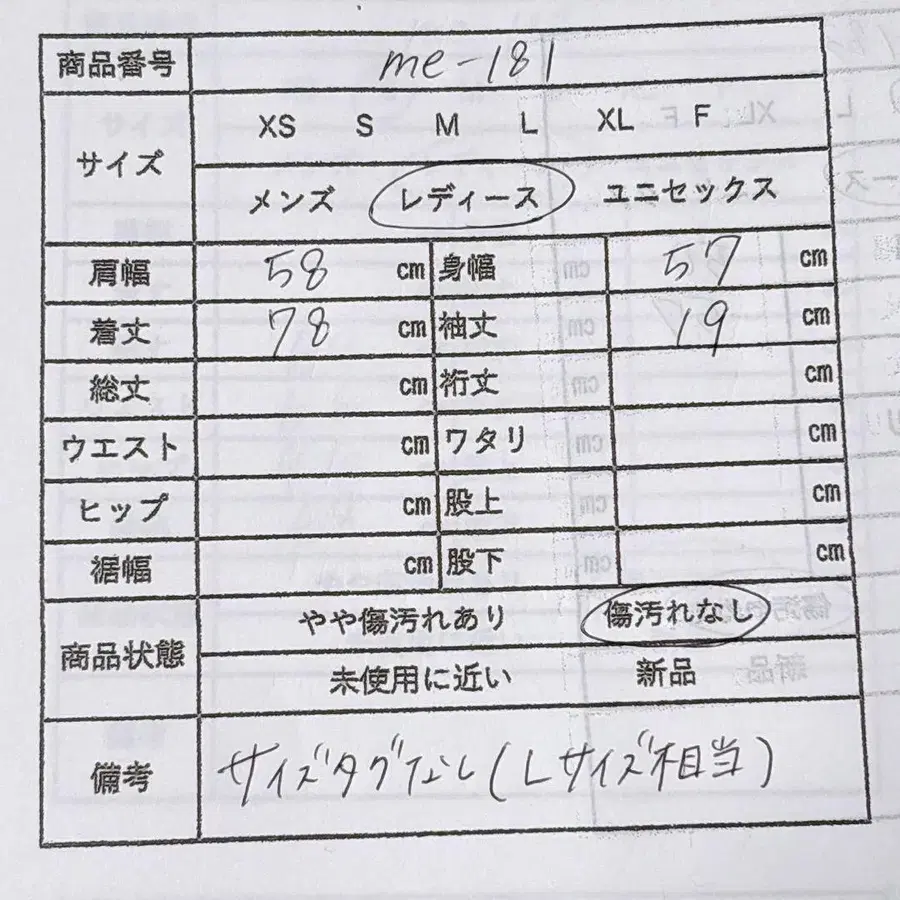 商品番号 me-181
サイズ XS S M L XL F
メンズ レディース ユニセックス
肩幅 58 cm 身幅 57 cm
着丈 78 cm 袖丈 19 cm
総丈 cm 裄丈 cm
ウエスト cm ワタリ cm
ヒップ cm 股上 cm
裾幅 cm 股下 cm
商品状態 やや傷汚れあり 傷汚れなし
未使用に近い 新品
備考 サイズタグなし(Lサイズ相当)